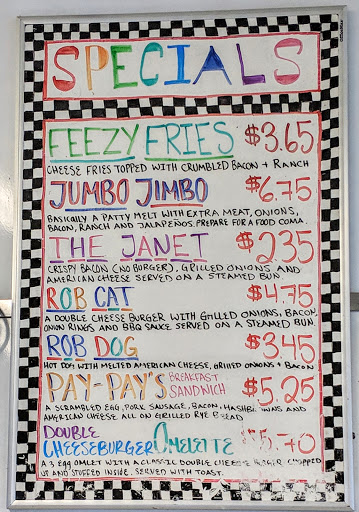 SPECIALS
FEEZY FRIES $3.65
CHEESE FRIES TOPPED WITH CRUMBLED BACON + RANCH
JUMBO JIMBO $6.75
BASICALLY A PATTY MELT WITH EXTRA MEAT, ONIONS,
BACON, RANCH AND JALAPEÑOS. PREPARE FOR A FOOD COMA.
THE JANET $2.35
CRISPY BACON (NO BURGER), GRILLED ONIONS AND
AMERICAN CHEESE SERVED ON A STEAMED BUN.
ROB CAT $4.75
A DOUBLE CHEESE BURGER WITH GRILLED ONIONS, BACON,
ONION RINGS AND BBQ SAUCE. SERVED ON A STEAMED BUN.
ROB DOG $3.45
HOT DOG WITH MELTED AMERICAN CHEESE, GRILLED ONIONS + BACON
PAY-PAY'S BREAKFAST SANDWICH $5.25
A SCRAMBLED EGG, PORK SAUSAGE, BACON, HASHBROWNS AND
AMERICAN CHEESE ALL ON GRILLED RYE BREAD
DOUBLE
CHEESEBURGER OMELETTE $5.40
A 3 EGG OMLET WITH A CLASSIC DOUBLE CHEESE BURGER CHOPPED
UP AND STUFFED INSIDE. SERVED WITH TOAST.